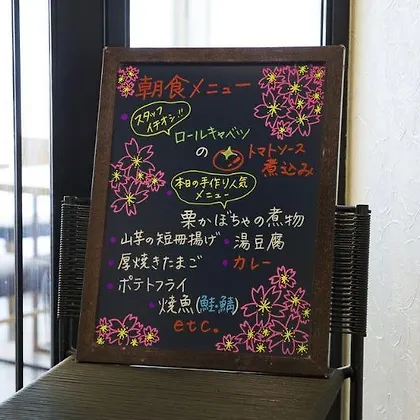 朝食メニュー
スタッフ
イチオシ!!
ロールキャベツ
の
トマトソース
煮込み
本日の手作り人気
メニュー
栗かぼちゃの煮物
・山芋の短冊揚げ・湯豆腐
・厚焼きたまご ・カレー
・ポテトフライ
・焼魚(鮭・鯖)
etc.